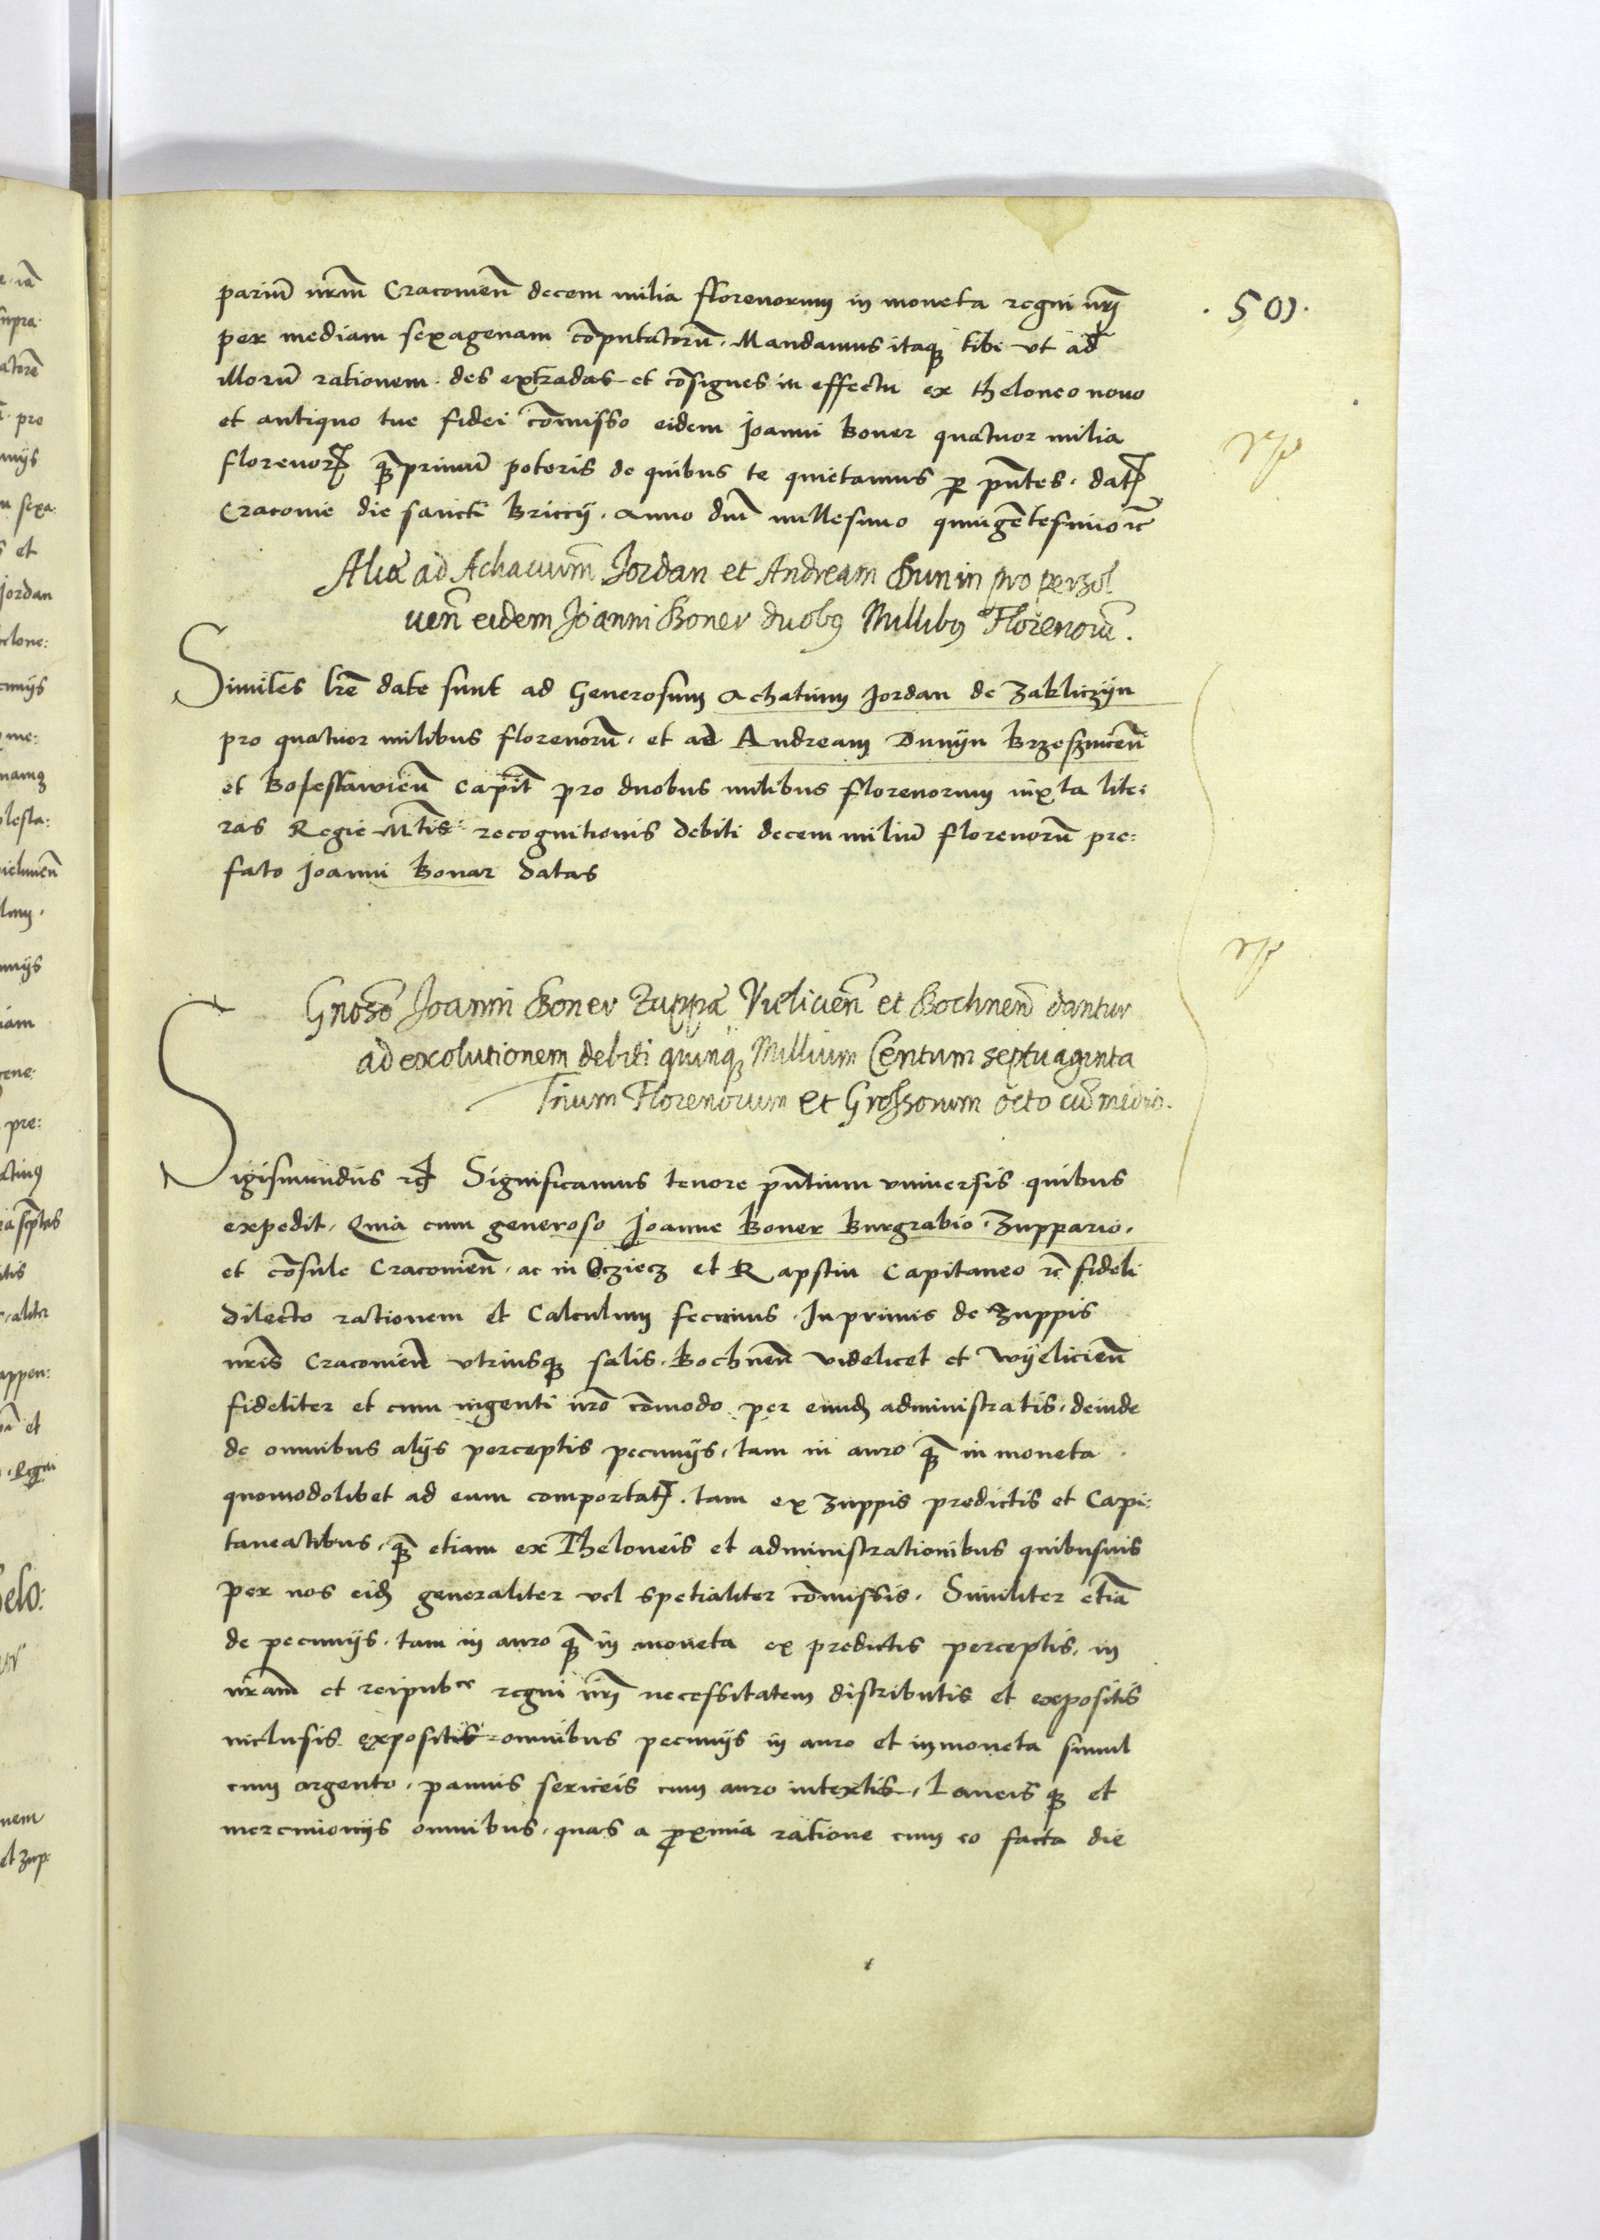 . 501.
pariũ nrm̃ Cracovieñ decem milia florenorum in moneta regni nrĩ
per mediam sexagenam cõputatorũ. Mandamus itaqꝫ tibi ut ad
illorũ rationem des extradas et cõsignes in effectu ex theloneo novo
et antiquo tue fidei cõmisso eidem Joanni Boner quatuor milia
florenorꝝ quãprimũ poteris de quibus te quietamus ꝑ pñtes. datꝝ
Cracovie die sancti Briccij. Anno dñi millesimo quingẽtesimo rc̃
Aliæ ad Achacium Jordan et Andream Dunin pro persol
ueñ eidem Joanni Boner duobꝫ Millibꝫ Florenorũ.
Similes lrẽ date sunt ad Generosum Achatium Jordan de Zakliczyn
pro quatuor milibus florenorũ. et ad Andream Dunijn Brzesznicen̄
et Boleslawieñ Capit̃ pro duobus milibus florenorum iuxta lite:
ras Regie Mt̃is: recognitionis debiti decem miliũ florenorũ pre:
fato Joanni Bonar datas
Gnoso Joanni Boner Zuppæ Vielicieñ et Bochneñ dantur
ad exolutionem debiti quinqꝫ Millium Centum septuaginta
Trium Florenorum et Grossorum octo cũ medio.
Sigismundus rc̃ Significamus tenore pñtium universis quibus
expedit. Quia cum generoso Joanne Boner Burgrabio. Zuppario.
et cõsule Cracovieñ. ac in Ocziecz et Rapstin Capitaneo rc̃ fideli
dilecto rationem et Calculum fecimus. Inprimis de Zuppis
nrĩs Cracovieñ utriusqꝫ salis. Bochneñ videlicet et Wyelicieñ
fideliter et cum ingenti nrõ cõmodo per eundꝫ administratis. deinde
de omnibus alijs perceptis pecunijs. tam in auro quã in moneta
quomodolibet ad eum comportatꝝ. tam ex zuppis predictis et Capi:
taneatibus. quã etiam ex Theloneis et administrationibus quibusvis
per nos eidꝫ generaliter vel spetialiter cõmissis. Similiter etiã
de pecunijs. tam in auro quã in moneta ex predictis perceptis. in
nram̃ et reipubᶜᵉ regni nrĩ necessitatem distributis et expositis
inclusis expositis omnibus pecunijs in auro et in moneta simul
cum argento. pannis sericeis cum auro intextis. Laneis qꝫ et
mercimonijs omnibus. quas a ꝓxima ratione cum eo facta die